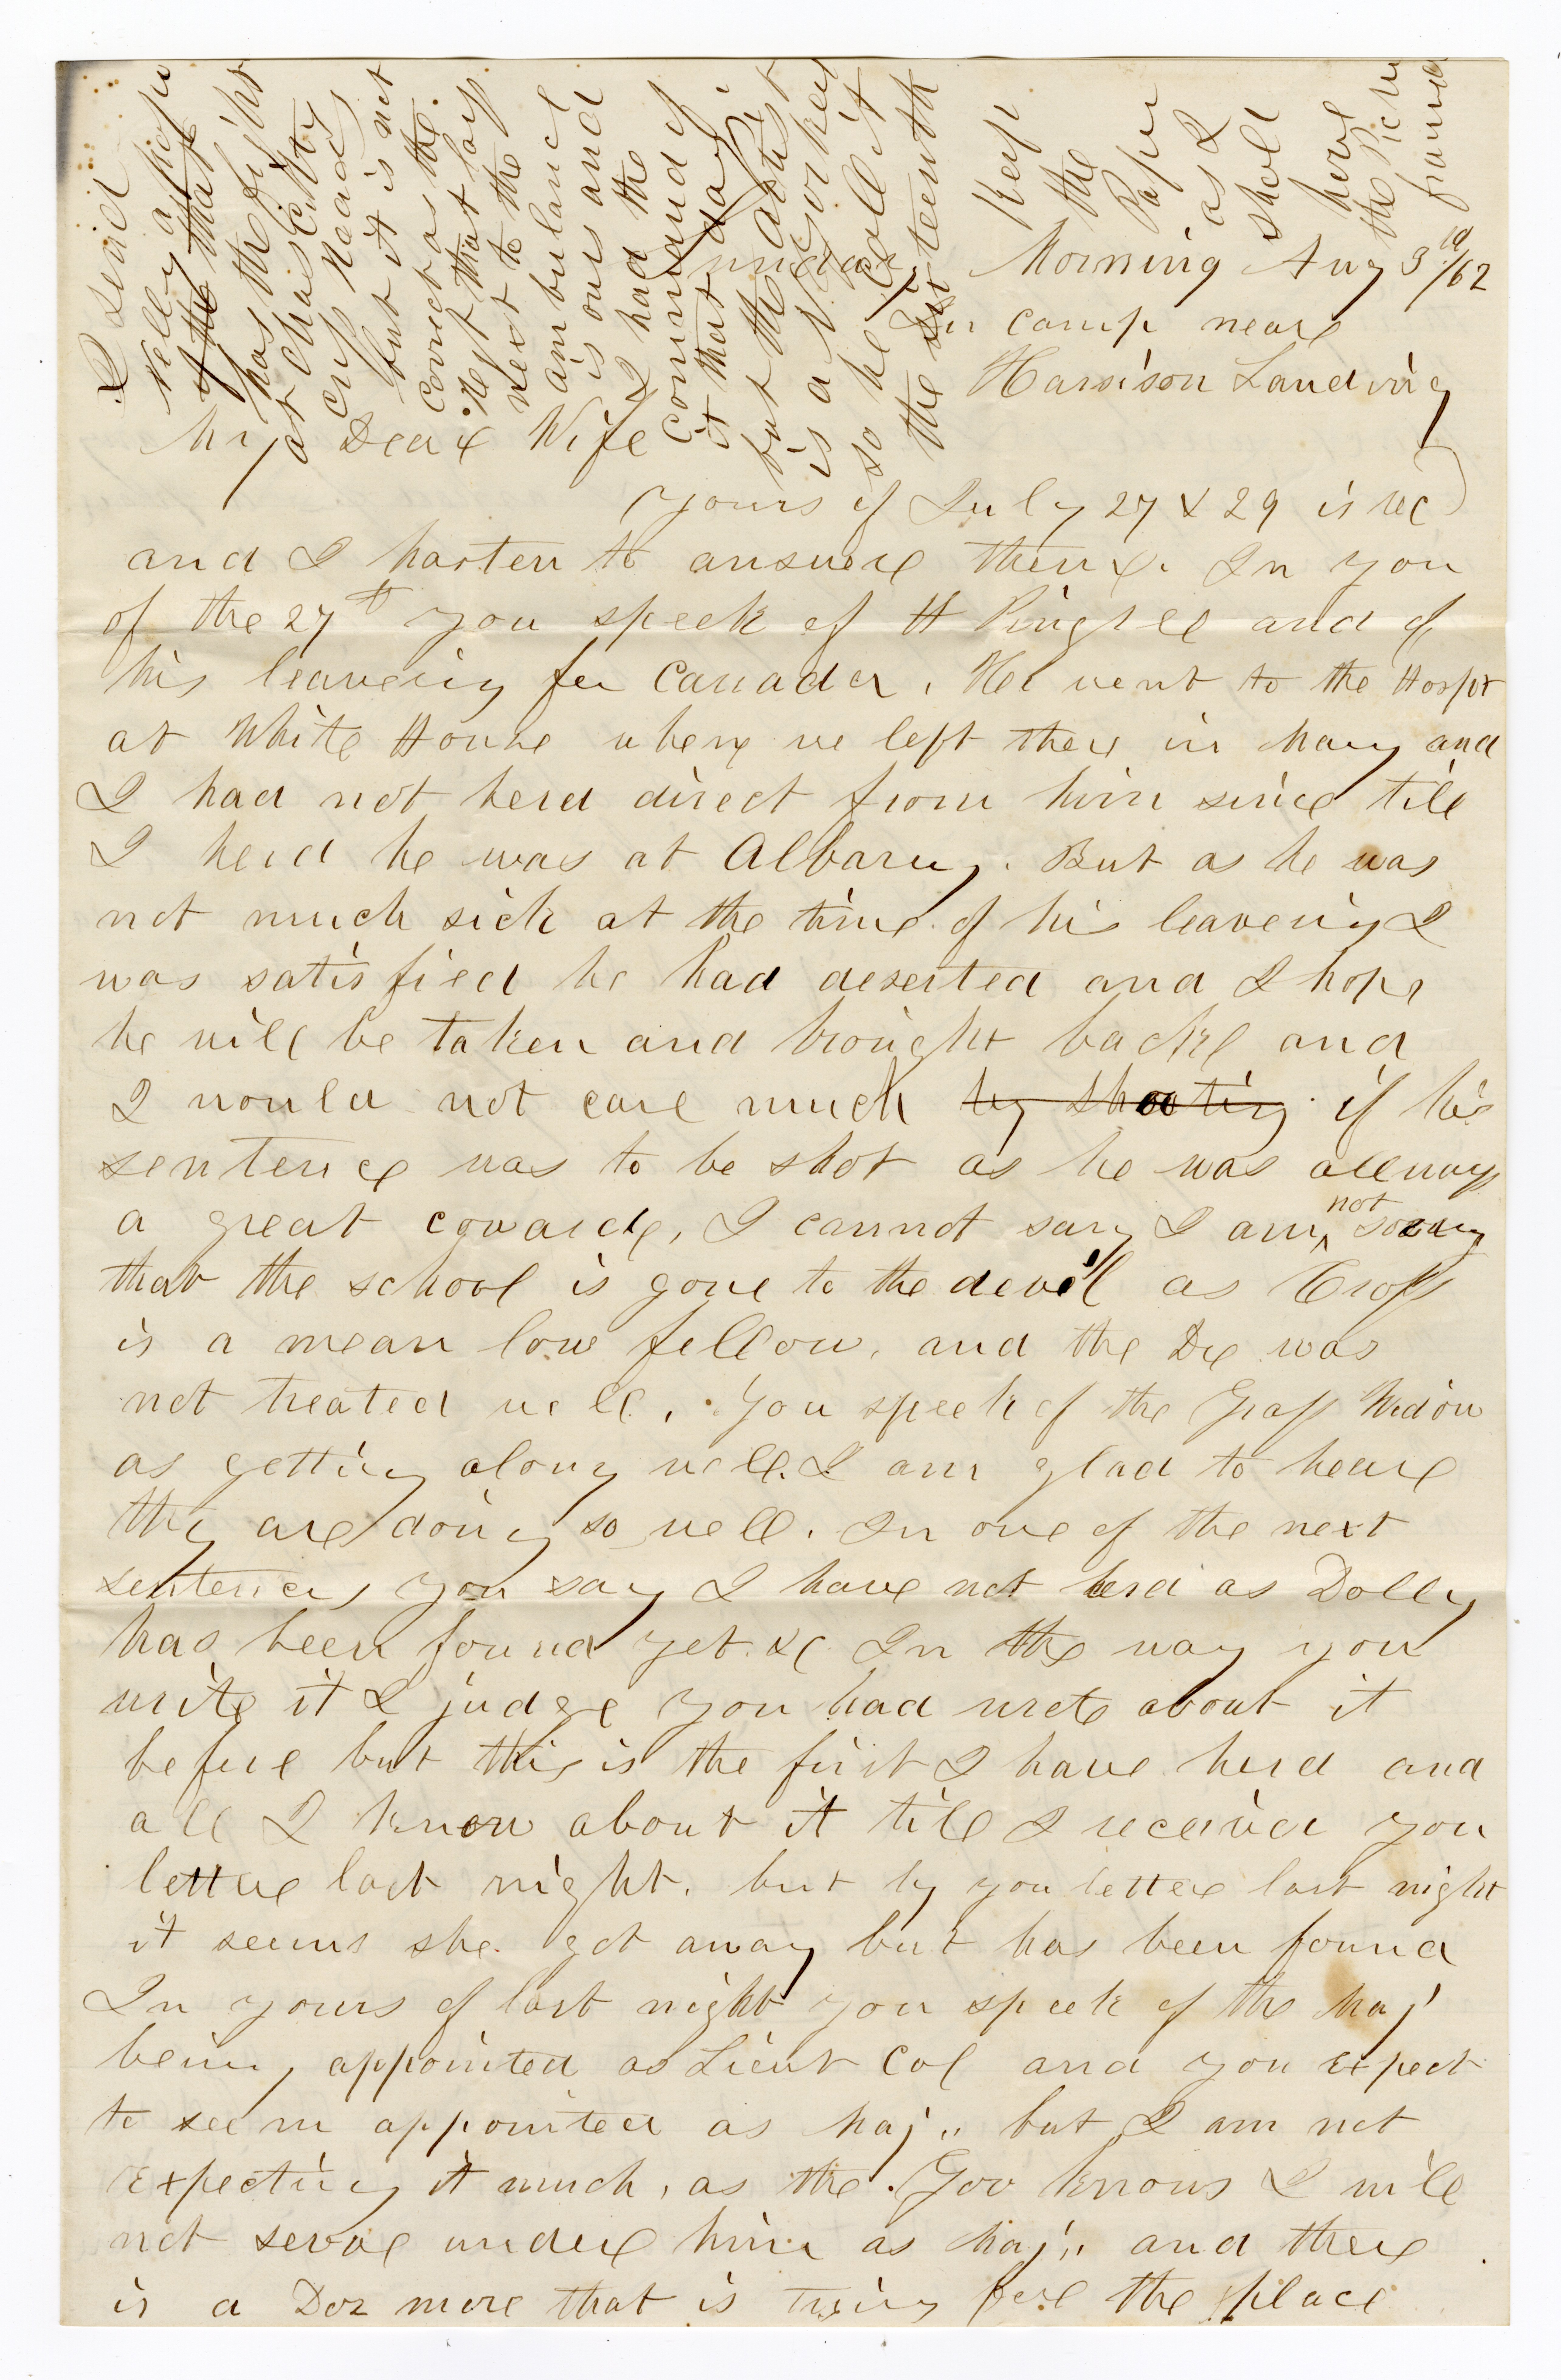 Sunday Morning Aug 3d/62
In camp near
Harrison Landing
My Dear Wife
Yours of July 27 & 29 is rec
and I hasten to answere them. In you
of the 27th you speek of H Pingree and of
his leaveing for Canada. He went to the Hospt
at White House where we left there in May and
I had not herd direct from him since till
I herd he was at Albany. But as he was
not much sick at the time of his leaveing I
was satisfied he had deserted and I hope
he will be taken and brought backe and
I would not care much by shooting if his
sentence was to be shot as he was allways
a great cowarde, I cannot say I am not sorry
that the school is gone to the devil as Cross
is a mean low fellow, and the Dr was
not treated well. You speek of the Grass Widow
as getting along well. I am glad to heare
they are doing so well. In one of the next
sentences you say I have not herd as Dolly
has been found yet. &c In the way you
write it I judge you had wrote about it
before but this is the first I have herd and
all I know about it till I receivd you
letture last night. but by you letter last night
it seems she got away but has been found
In yours of last night you speek of the Maj
being appointed as Lieut Col and you expect
to see m appointed as Maj., but I am not
expecting it much, as the Gov knows I will
not serve under him as Maj., and there
is a Doz more that is trying fore the place
I send
Nelly a paper
that
has the fight
at Chas City
cross Roads
but it is not
correct as the
Regt that lays
next to the
ambulance
is ours and
I had the
command of
it that day
but the artist
is a N Yorker
so he calls it
the sixteenth
Keep
the
Paper
as I
shall
have
the Pictu
framed